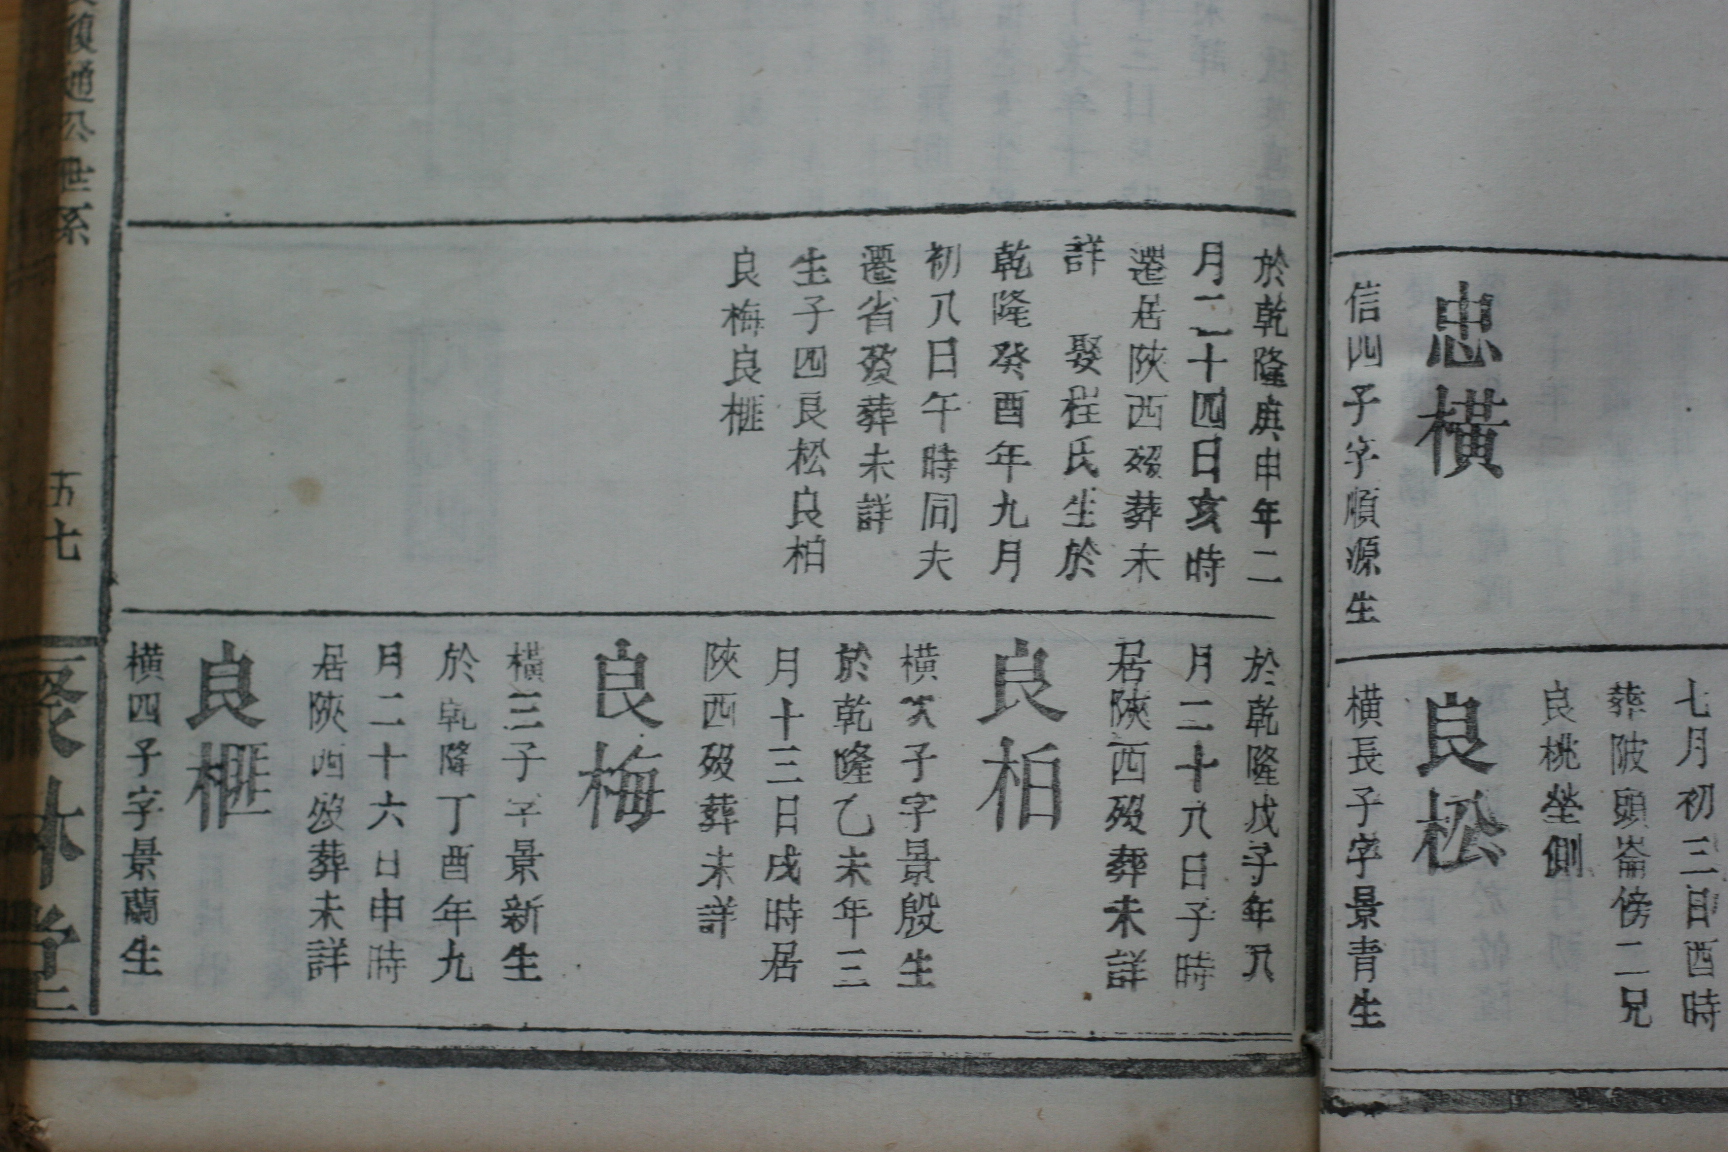 忠橫
信四子字順源生
於乾隆庚申年二
月二十四日亥時
遷居陝西歿葬未
詳 娶程氏生於
乾隆癸酉年九月
初八日午時同夫
遷省歿葬未詳
生子四良松良柏
良梅良榧
七月初三日酉時
葬陂頭崙傍二兄
良桃塋側
良松
橫長子字景青生
於乾隆戊子年八
月二十八日子時
居陝西歿葬未詳
良柏
橫次子字景殷生
於乾隆乙未年三
月十三日戌時居
陝西歿葬未詳
良梅
橫三子字景新生
於乾隆丁酉年九
月二十六日申時
居陝西歿葬未詳
良榧
橫四子字景蘭生
通公世系
五七
聚林堂